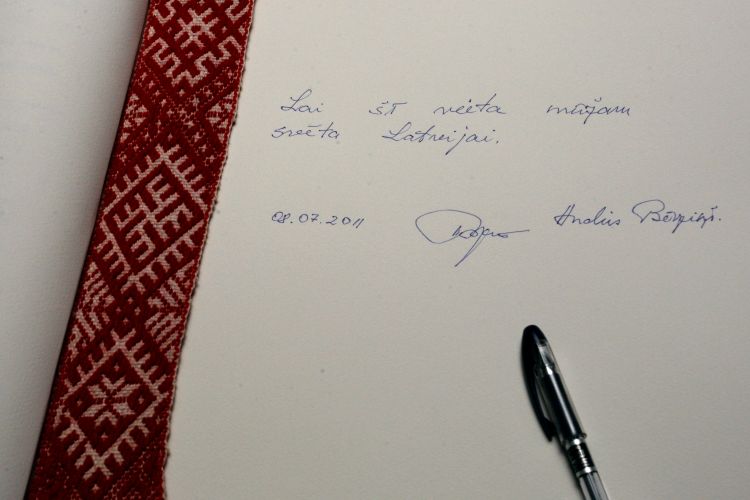 Lai šī vieta mūžam
svēta Latvijai.
08.07.2011 Andris Bērziņš.